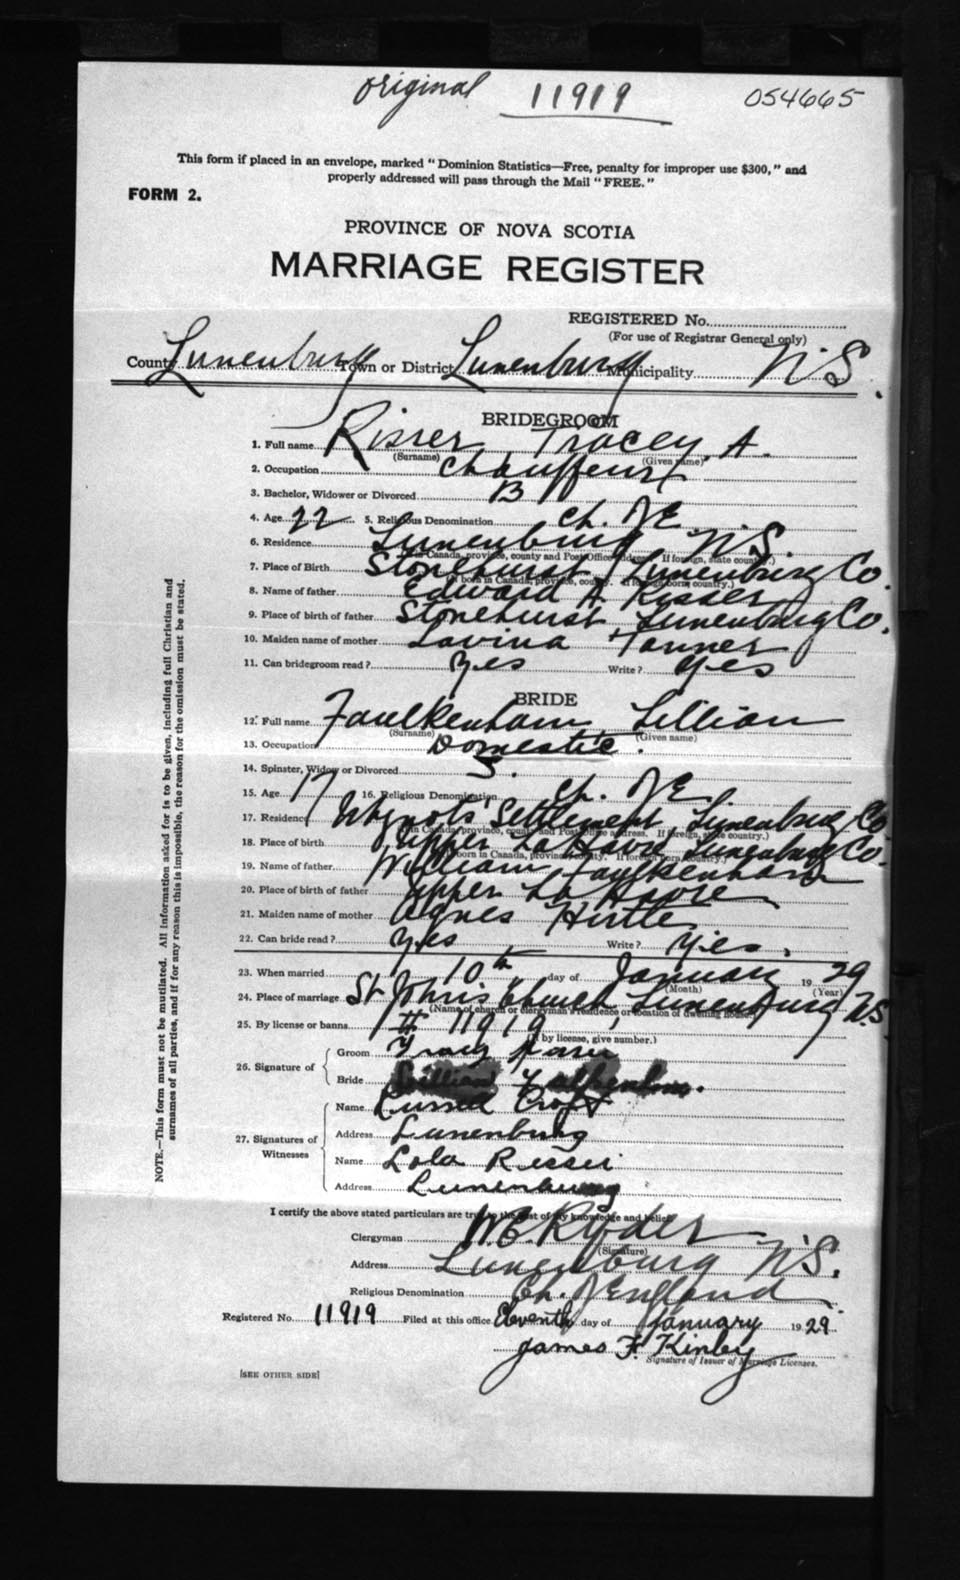 original 11919 054665
This form if placed in an envelope, marked "Dominion Statistics—Free, penalty for improper use $300," and
properly addressed will pass through the Mail "FREE."
FORM 2.
PROVINCE OF NOVA SCOTIA
MARRIAGE REGISTER
REGISTERED No.
(For use of Registrar General only)
County Lunenburg Town or District Lunenburg Municipality N.S.
BRIDEGROOM
1. Full name Risser Tracey. A.
(Surname) (Given name)
2. Occupation Chauffeur
3. Bachelor, Widower or Divorced B
4. Age 22 5. Religious Denomination Ch. of E.
6. Residence Lunenburg N.S.
(If in Canada, province, county and Post Office address. If foreign, state country.)
7. Place of Birth Stonehurst Lunenburg Co.
(If born in Canada, province, county. If foreign born, country.)
8. Name of father Edward A. Risser
9. Place of birth of father Stonehurst Lunenburg Co.
10. Maiden name of mother Lavina Tanner
11. Can bridegroom read? Yes Write? Yes
BRIDE
12. Full name Faulkenham Lillian
(Surname) (Given name)
13. Occupation Domestic.
14. Spinster, Widow or Divorced S.
15. Age 17 16. Religious Denomination Ch. of E.
17. Residence Whynots Settlement Lunenburg Co
(If in Canada, province, county and Post Office address. If foreign, state country.)
18. Place of birth Upper La Have Lunenburg Co.
(If born in Canada, province, county. If foreign born, country.)
19. Name of father William Faulkenham
20. Place of birth of father Upper La Have
21. Maiden name of mother Agnes Hirtle
22. Can bride read? Yes Write? Yes.
23. When married 10th day of January 1929
(Month) (Year)
24. Place of marriage St John's Church, Lunenburg N.S.
(Name of church or clergyman's residence or location of dwelling house.)
25. By license or banns # 11919
(If by license, give number.)
26. Signature of
Groom Tracy Risser
Bride Lillian Falkenham.
27. Signatures of Witnesses
Name Russel Croft
Address Lunenburg
Name Lola Risser
Address Lunenburg
I certify the above stated particulars are true to the best of my knowledge and belief.
Clergyman W.E. Ryder
(Signature)
Address Lunenburg N.S.
Religious Denomination Ch. of England
Registered No. 11919 Filed at this office Eleventh day of January 1929
James F. Kinley
Signature of Issuer of Marriage Licenses.
[SEE OTHER SIDE]
NOTE.—This form must not be mutilated. All information asked for is to be given, including full Christian and
surnames of all parties, and if for any reason this is impossible, the reason for the omission must be stated.